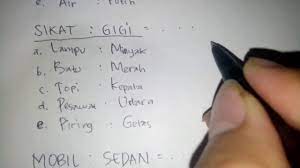 e. Air : Putih
SIKAT : GIGI = . . . .
a. Lampu : Minyak
b. Batu : Merah
c. Topi : Kepala
d. Pesawat : Udara
e. Piring : Gelas
MOBIL : SEDAN = . .